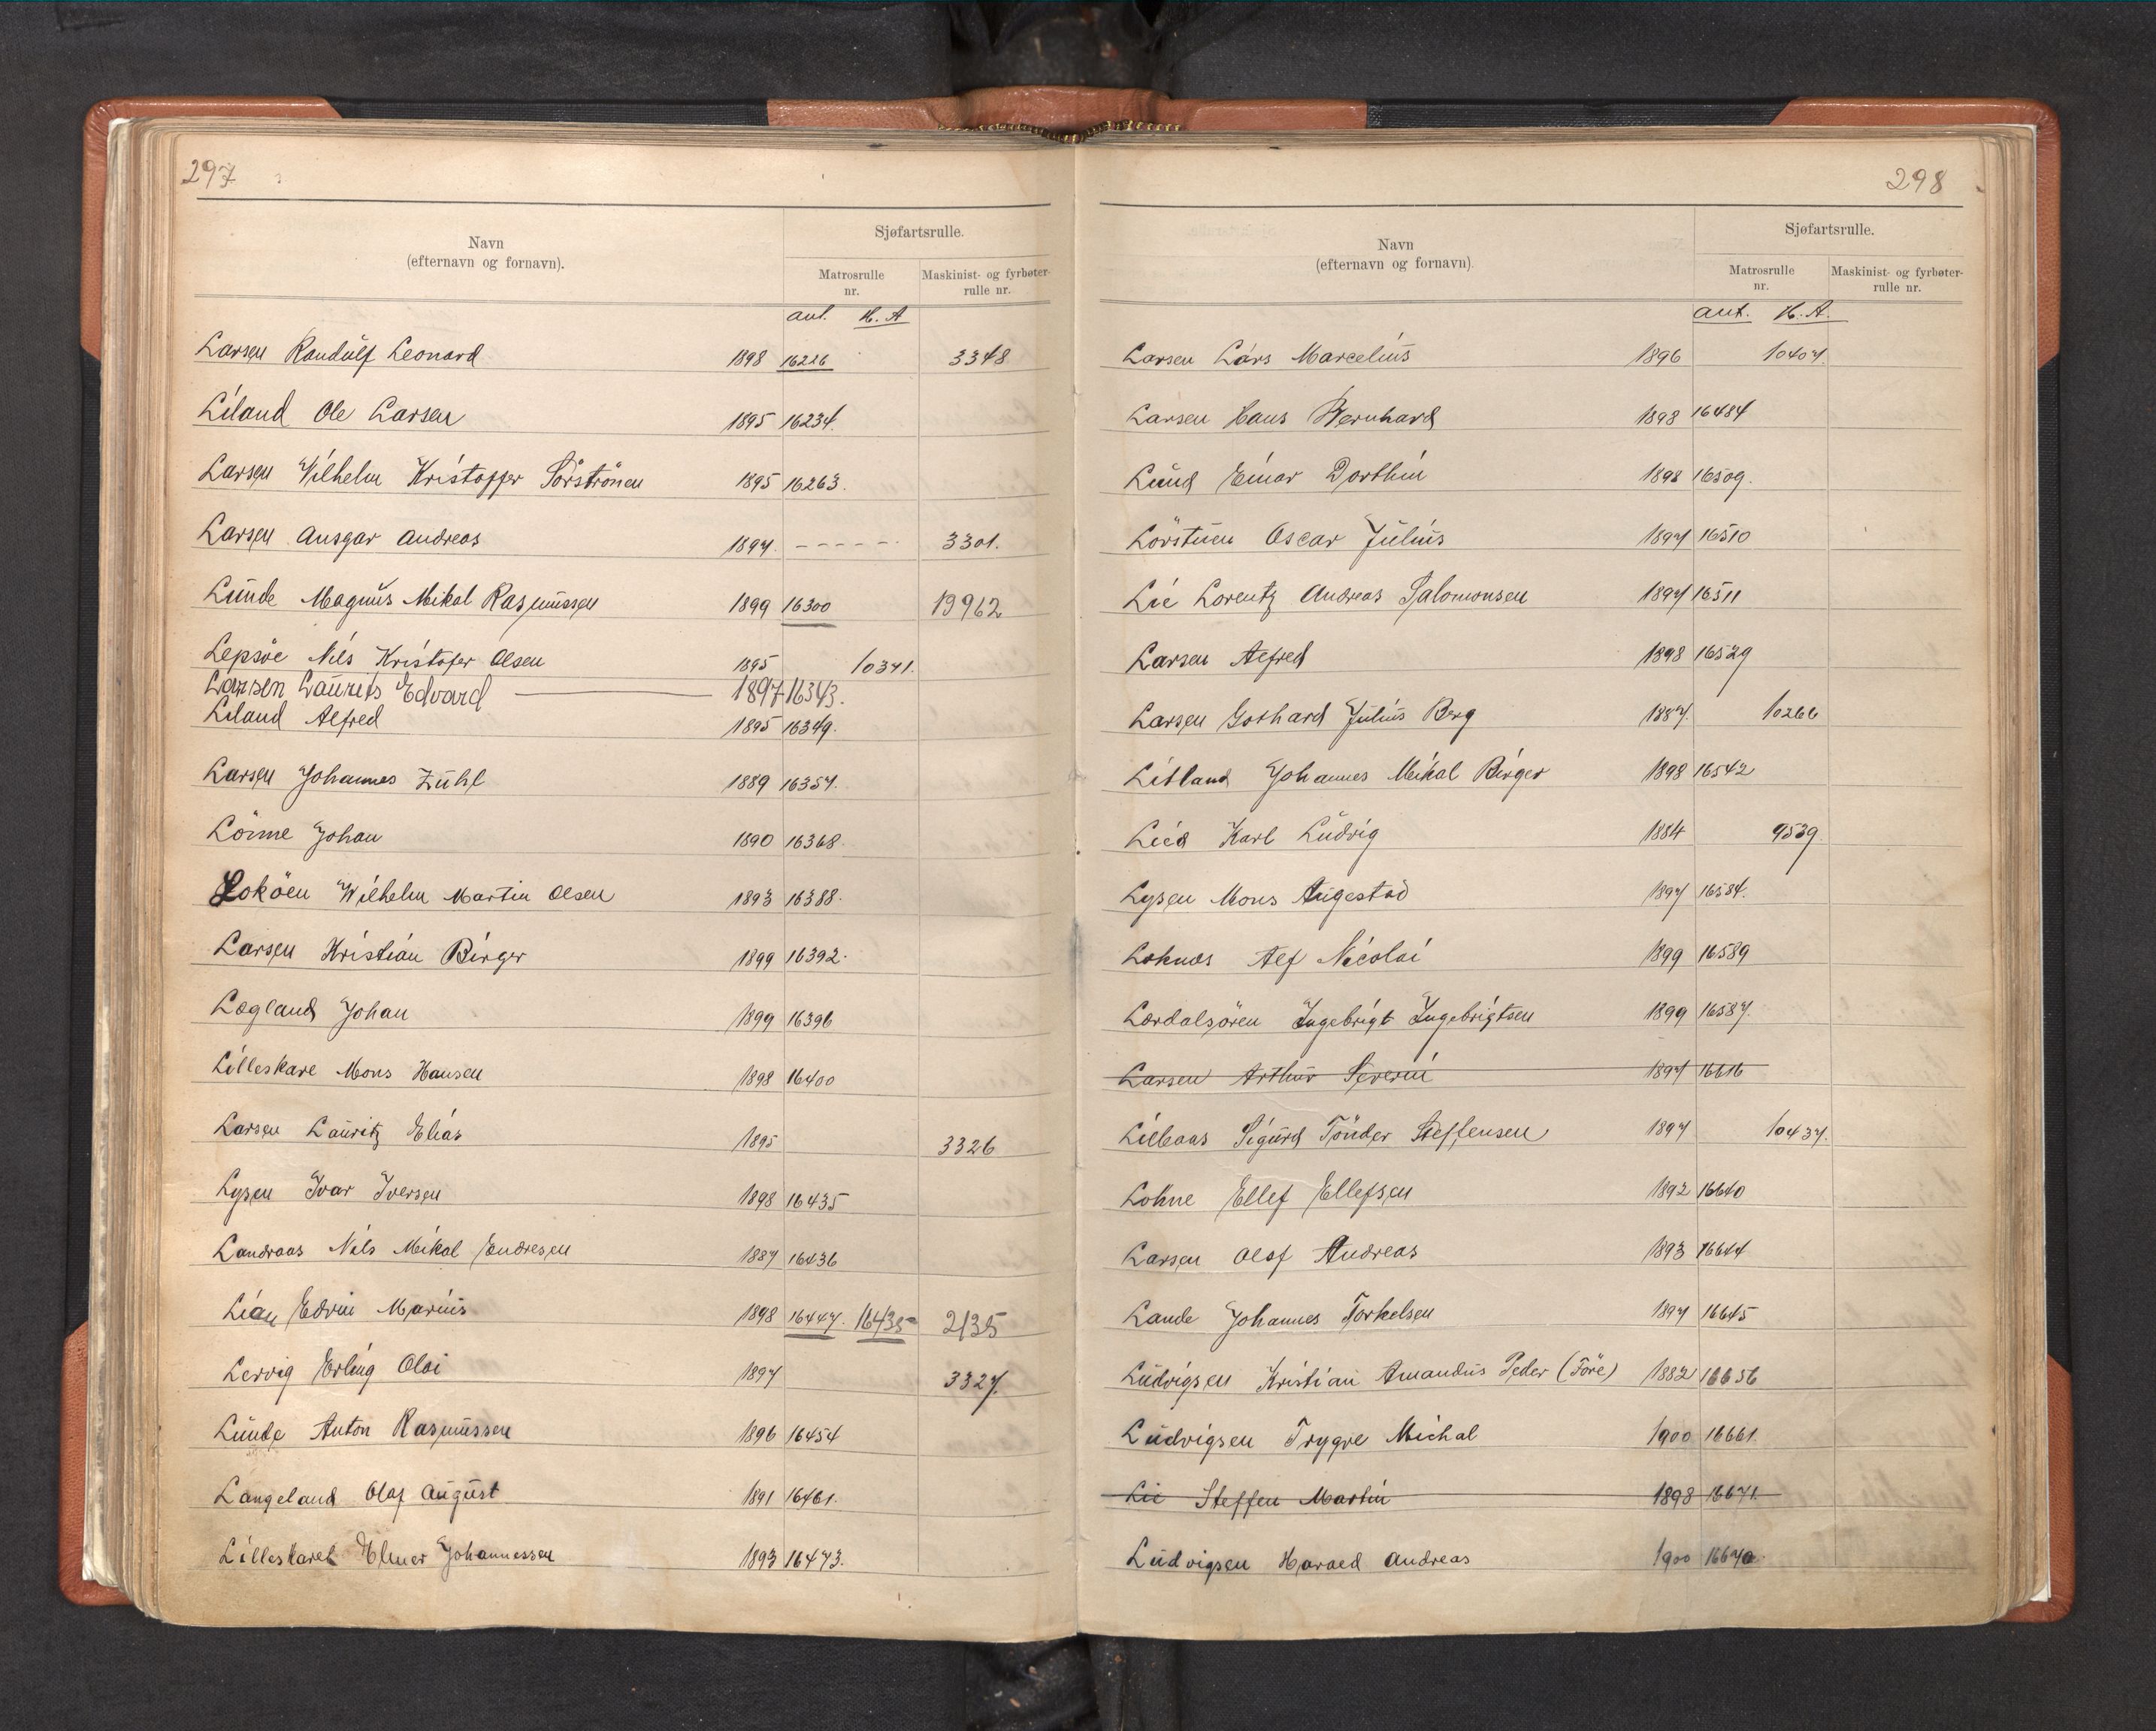 297
Navn
(efternavn og fornavn).
Sjøfartsrulle.
Matrosrulle
nr.
Maskinist- og fyrbøter-
rulle nr.
ant. H. A
Larsen Randülf Leonard 1898 16226 3348
Liland Ole Larsen 1895 16234.
Larsen Vilhelm Kristoffer Sörströnen 1895 16263.
Larsen Ansgar Andreas 1897. - - - - - - 3301.
Lünde Magnüs Mikal Rasmüssen 1899 16300 19962
Lepsöe Nils Kristofer Olsen 1895 10341.
Larsen Laurits Edvard 1897 16343.
Liland Alfred 1895 16349.
Larsen Johannes Zühl 1889 16357.
Lönne Johan 1890 16368.
Loköen Wilhelm Martin Olsen 1893 16388.
Larsen Kristian Birger 1899 16392.
Lægland Johan 1899 16396
Lilleskare Mons Hansen 1898 16400
Larsen Lauritz Elias 1895 3326
Lysen Ivar Iversen 1898 16435
Landraas Nils Mikal Endresen 1887 16436
Lian Edvin Marius 1898 16447. 16435 2135
Lervig Erling Olai 1897 3327.
Lünde Anton Rasmüssen 1896 16454
Langeland Olaf August 1891 16461.
Lilleskaret Elmer Johannessen 1893 16473.
298
Navn
(efternavn og fornavn).
Sjøfartsrulle.
Matrosrulle
nr.
Maskinist- og fyrbøter-
rulle nr.
ant. H. A.
Larsen Lars Marcelius 1896 10407.
Larsen Hans Bernhard 1898 16484
Lünd Einar Dorthin 1898 16509.
Lörstüen Oscar Jülius 1897 16510
Lie Lorentz Andreas Salomonsen 1897 16511
Larsen Alfred 1898 16529
Larsen Gothard Jülius Berg 1887. 10266
Litland Johannes Mikal Birger 1898 16542
Lied Karl Lüdvig 1884 9539.
Lysen Mons Augestad 1897 16584.
Loknæs Alf Nicolai 1899 16589
Lærdalsören Ingebrigt Ingebrigtsen 1899 16587.
Larsen Arthur Severin 1897 16616
Lilbaas Sigurd Tönder Steffensen 1897 10437.
Lohne Ellef Ellefsen 1892 16640
Larsen Olaf Andreas 1893 16644
Lande Johannes Torkelsen 1897 16645
Lüdvigsen Kristian Amandüs Peder (Töre) 1882 16656
Lüdvigsen Trygve Michal 1900 16661.
Lie Steffen Martin 1898 16671.
Lüdvigsen Harald Andreas 1900 16670.